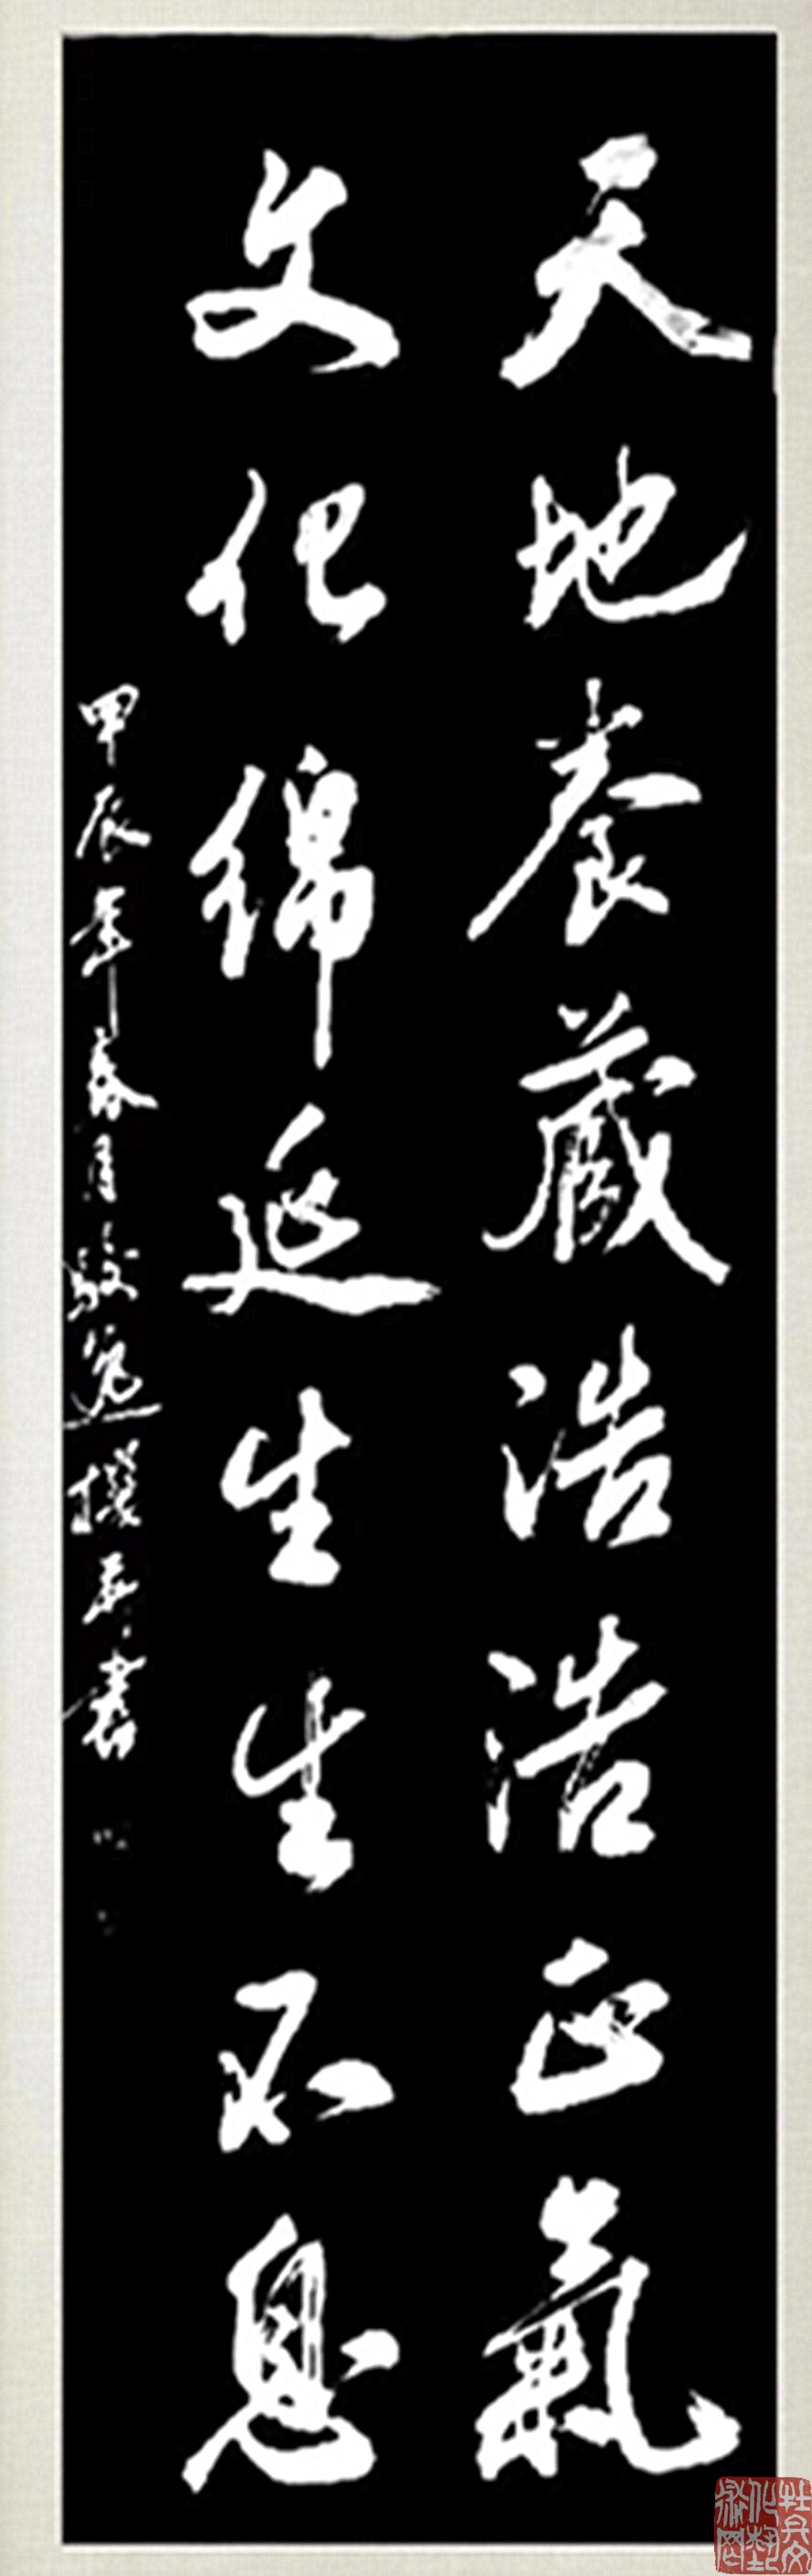 天地養藏浩浩正氣
文化綿延生生不息
甲辰年春月駿逸撰并書